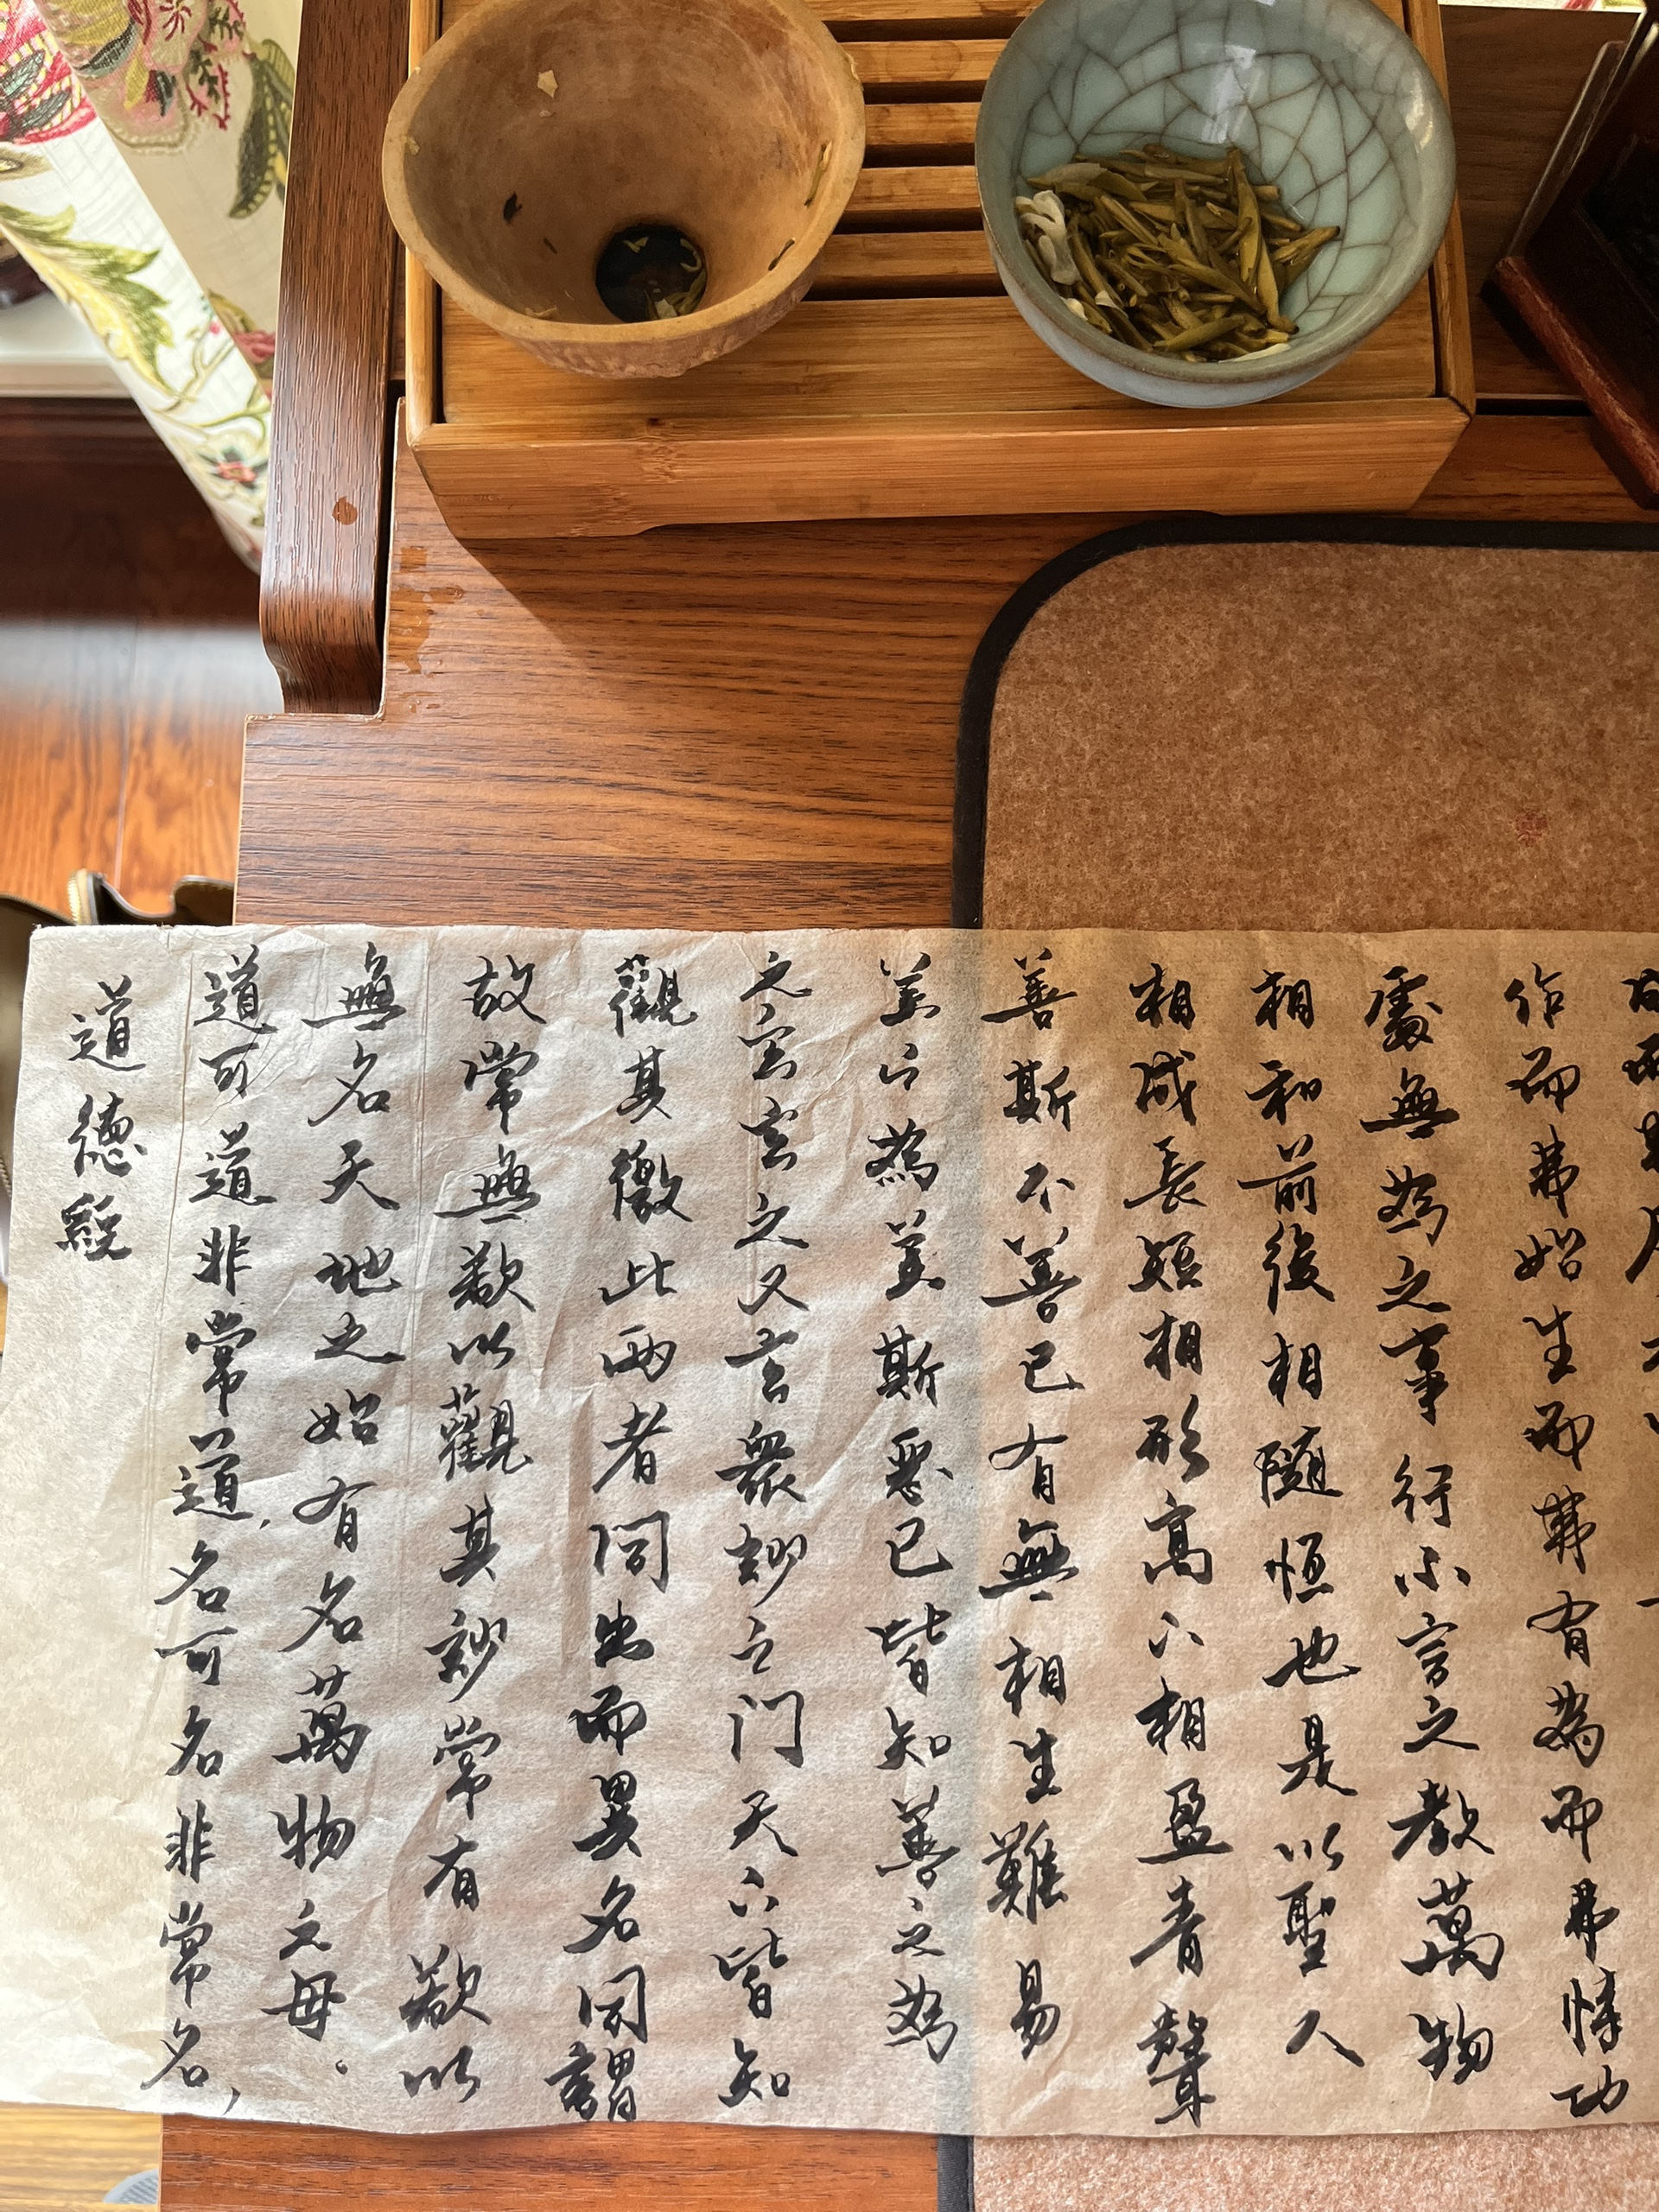 道德經
道可道非常道,名可名非常名,
無名天地之始有名萬物之母。
故常無欲以觀其妙常有欲以
觀其徼此兩者同出而異名同謂
之玄玄之又玄衆妙之门天下皆知
美之為美斯惡已皆知善之為
善斯不善已有無相生難易
相成長短相形高下相盈音聲
相和前後相隨恒也是以聖人
處無為之事行不言之教萬物
作而弗始生而弗有為而弗恃功